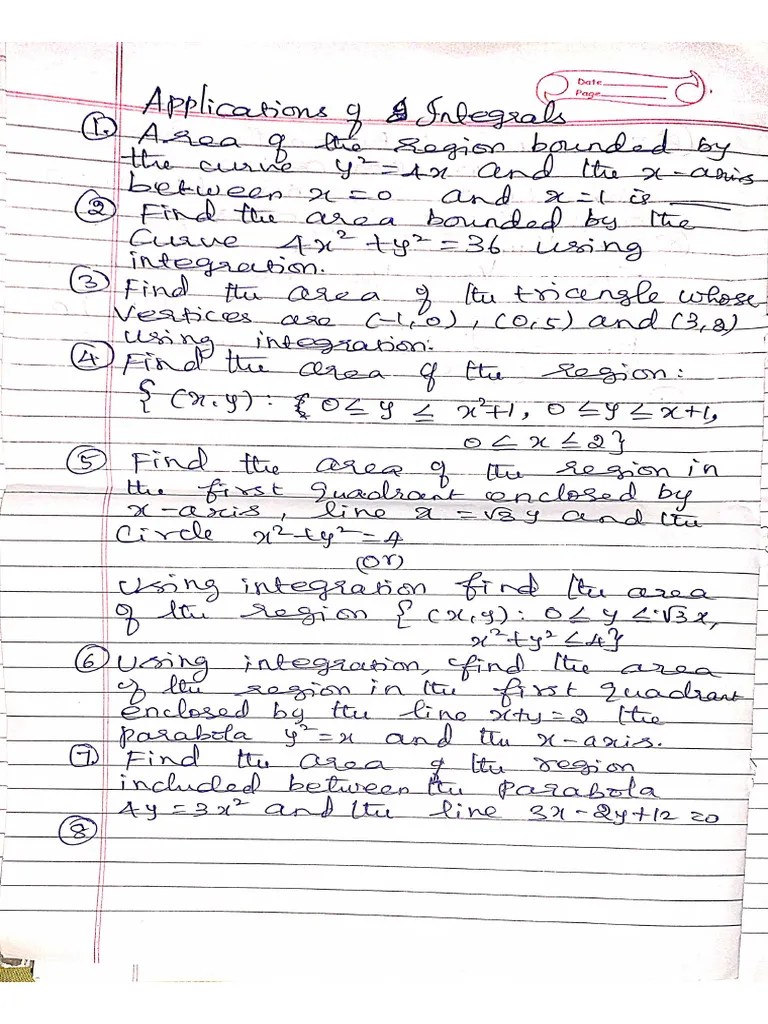 Date
Page
Applications of Integrals
1. Area of the region bounded by
the curve y² = 4x and the x-axis
between x=0 and x=1 is ____
2 Find the area bounded by the
Curve 4x² + y² = 36 using
integration.
3 Find the area of the triangle whose
vertices are (-1,0), (0,5) and (3,2)
using integration.
4 Find the area of the region:
{ (x,y) : { 0≤y ≤ x²+1, 0≤y≤x+1,
0≤x≤2}
5 Find the area of the region in
the first quadrant enclosed by
x-axis, line x = √3y and the
Circle x²+y² = 4
(or)
Using integration find the area
of the region { (x,y): 0≤ y ≤ √3x,
x²+y² ≤4}
6 Using integration, find the area
of the region in the first quadrant
enclosed by the line x+y=2 the
parabola y²=x and the x-axis.
7. Find the area of the region
included between the parabola
4y = 3x² and the line 3x-2y+12=0
8